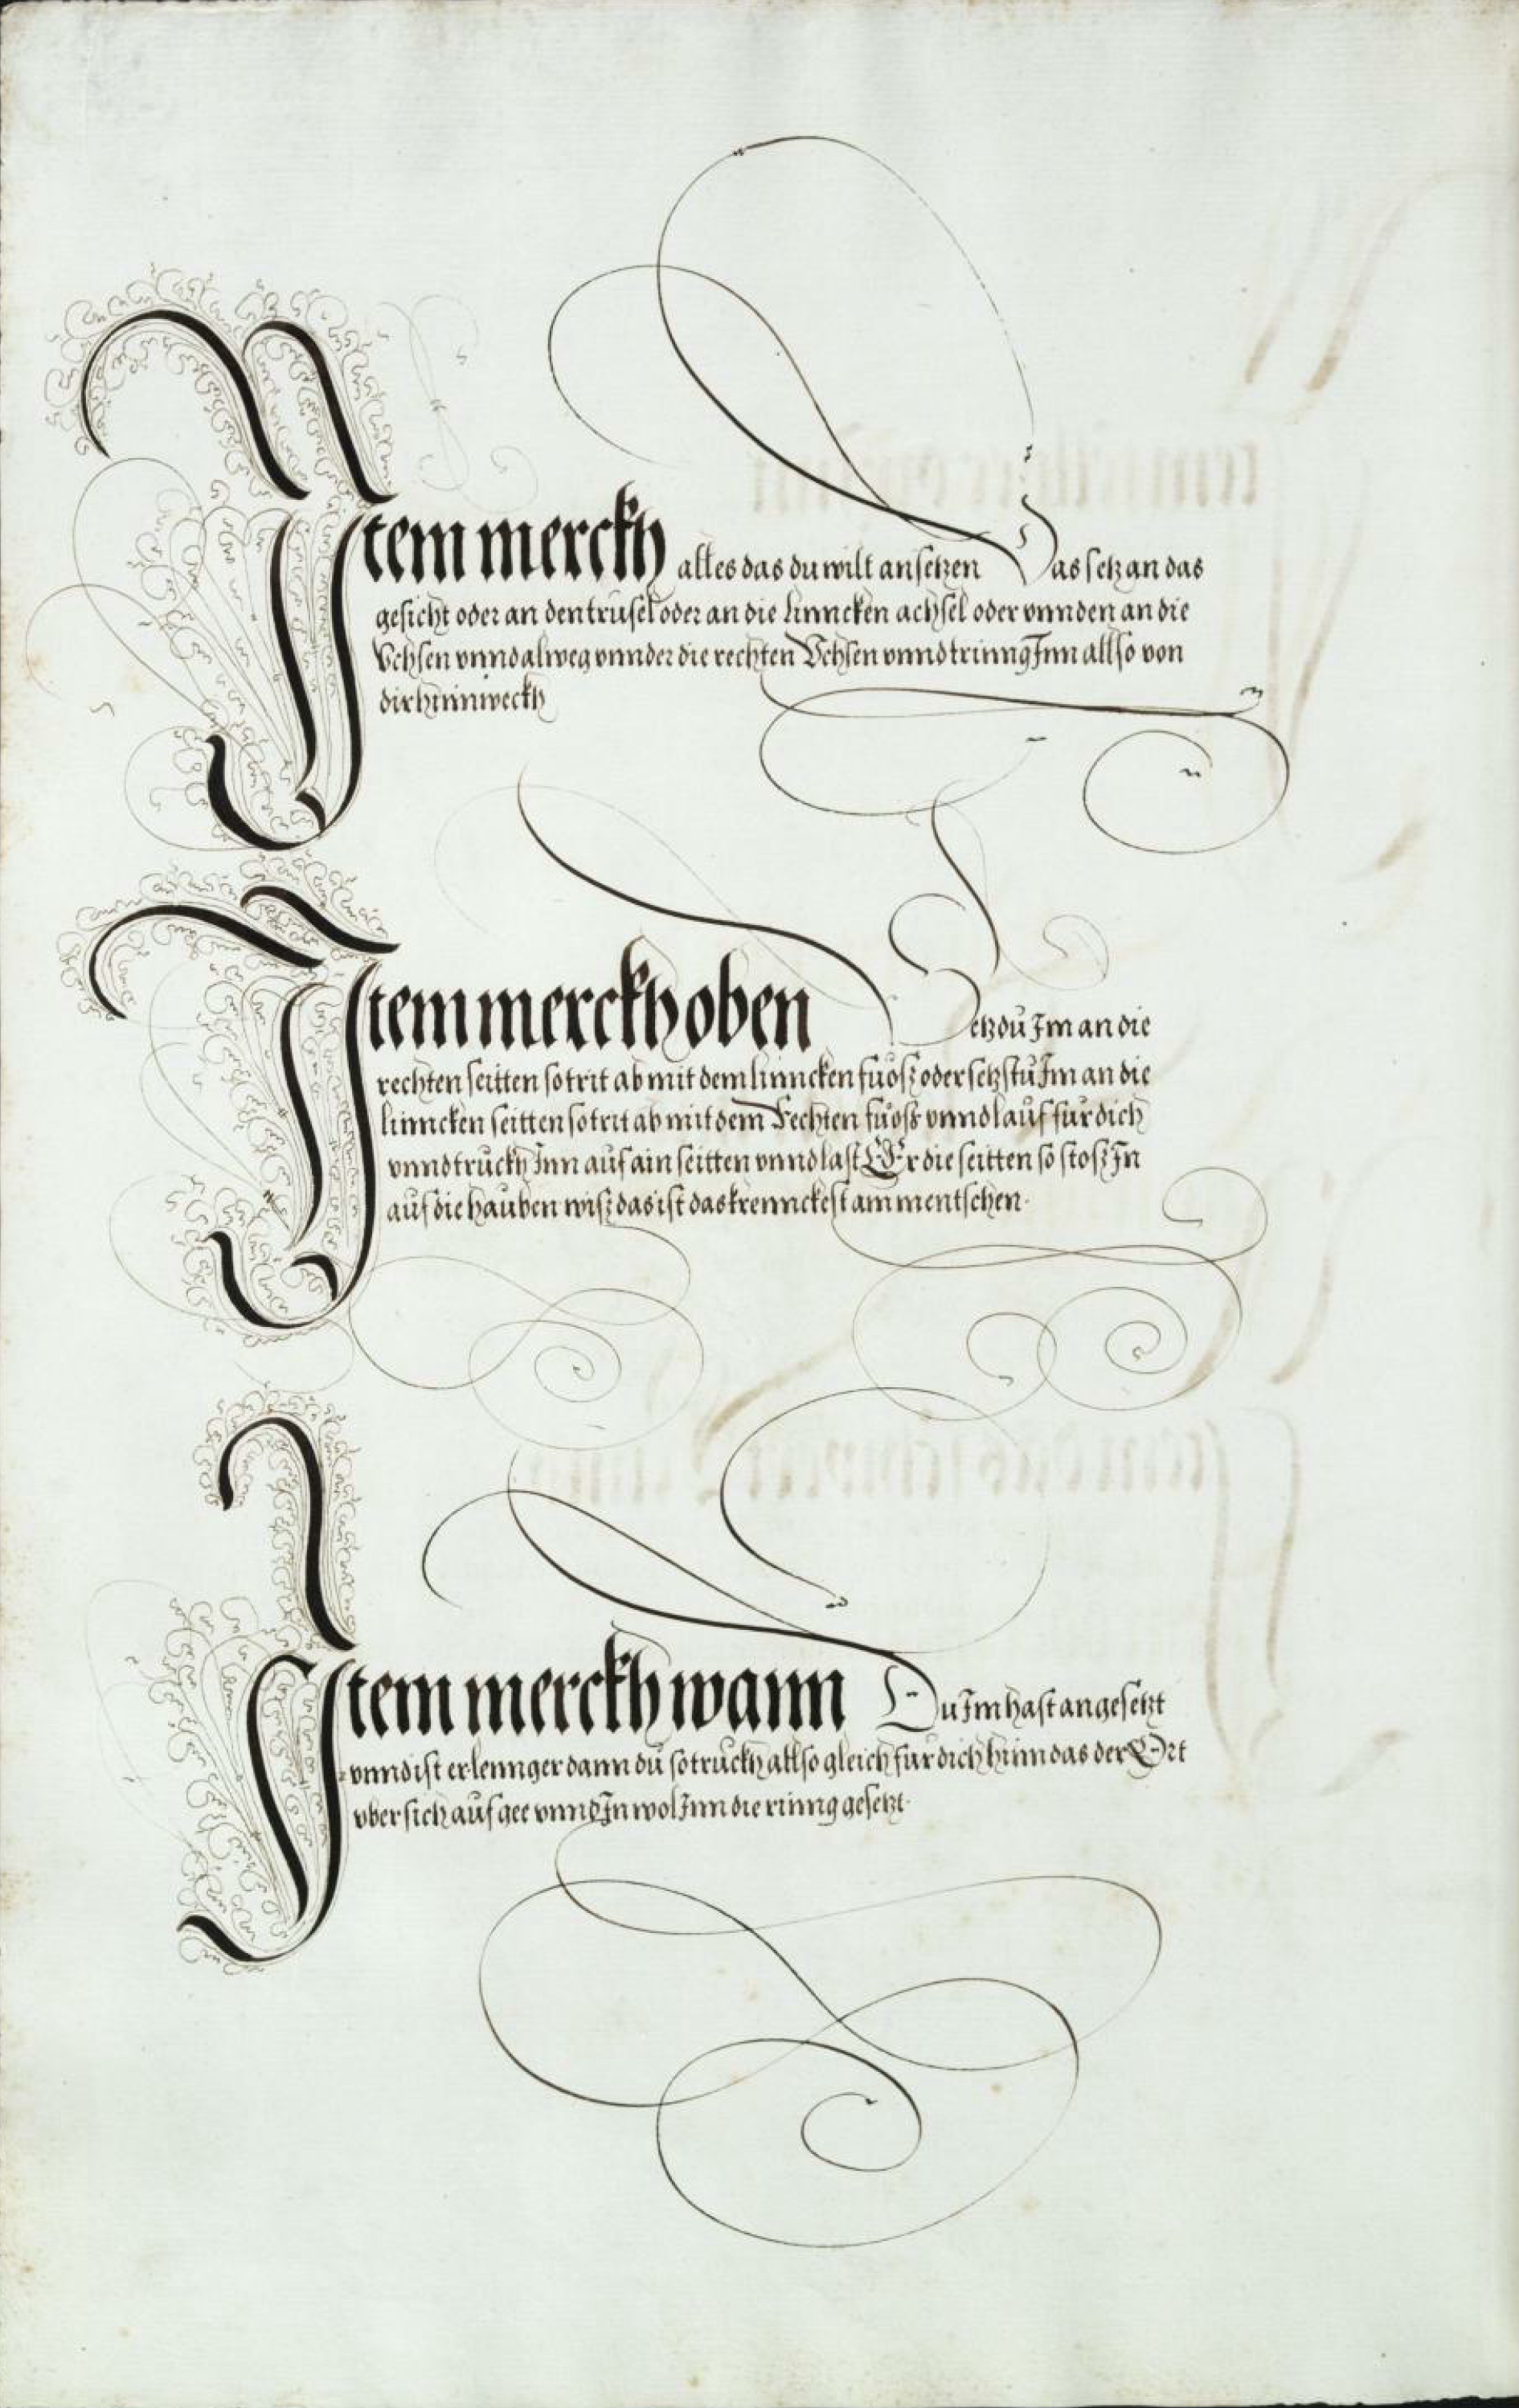 Item merckh alles das du wilt ansetzen Das setz an das
gesicht oder an den trusel oder an die linncken achsel oder vnnden an die
Vchsen vnnd alweg vnnder die rechten Vchsen vnnd trinng Inn allso von
dir hinnweckh
Item merckh oben Setz dü Im an die
rechten seitten so trit ab mit dem linncken füosz oder setzstü Im an die
linncken seitten so trit ab mit dem Rechten füosz vnnd lauf für dich
vnnd truckh Inn auf ain seitten vnnd last Er die seitten so stosz In
auf die hauben wisz das ist das krennckest am mentschen.
Item merckh wann Du Im hast angesetzt
vnnd ist er lennger dann dü so truckh allso gleich für dich hinn das der Ort
vber sich auf gee vnnd In wol Inn die rinng gesetzt.